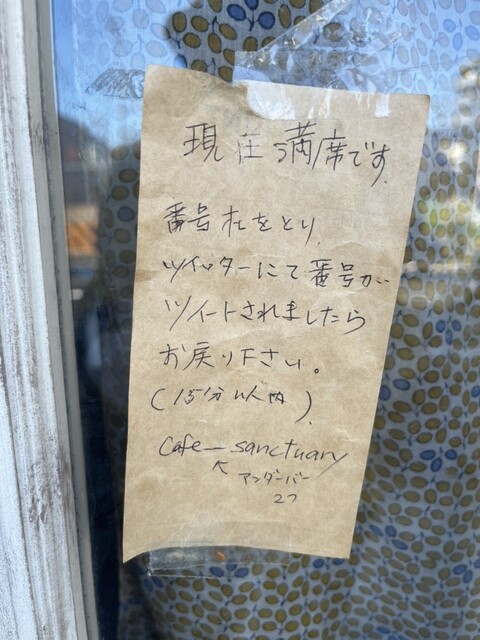 現在満席です.
番号札をとり、
ツイッターにて番号が
ツイートされましたら
お戻り下さい。
(15分以内)
Cafe__sanctuary
↖アンダーバー
2つ